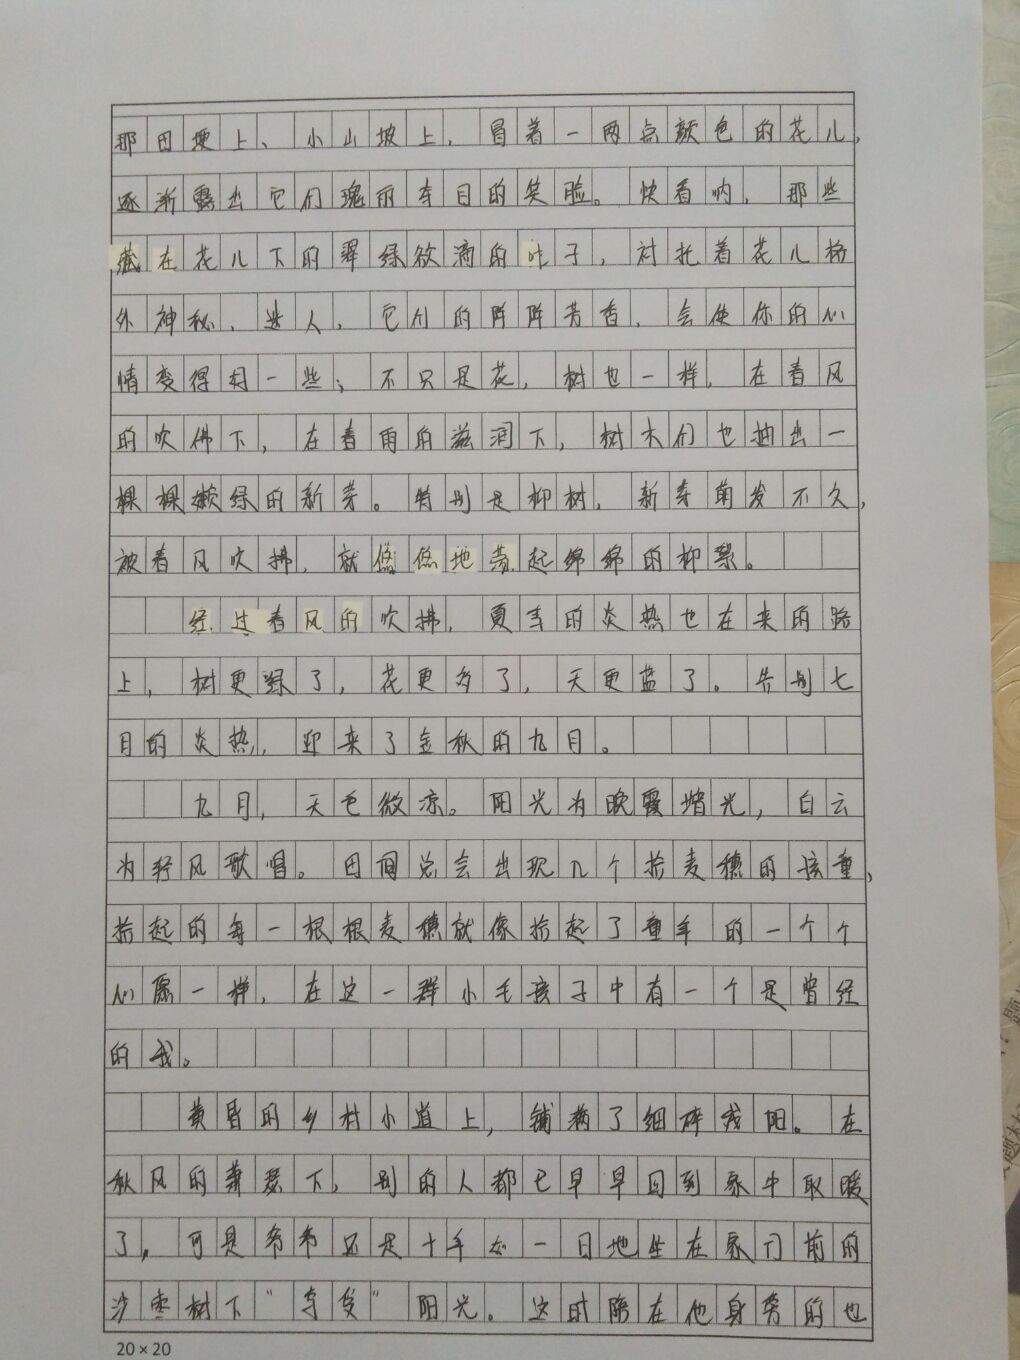 那田埂上、小山坡上，冒着一两点颜色的花儿，
逐渐露出它们瑰丽夺目的笑脸。快看呐，那些
藏在花儿下的翠绿欲滴的叶子，衬托着花儿格
外神秘、迷人，它们的阵阵芳香，会使你的心
情变得好一些；不只是花，树也一样，在春风
的吹佛下，在春雨的滋润下，树木们也抽出一
棵棵嫩绿的新芽。特别是柳树，新芽萌发不久，
被春风吹拂，就悠悠地荡起绵绵的柳絮。
经过春风的吹拂，夏季的炎热也在来的路
上，树更绿了，花更多了，天更蓝了。告别七
月的炎热，迎来了金秋的九月。
九月，天色微凉。阳光为晚霞增光，白云
为轻风歌唱。田间总会出现几个拾麦穗的孩童，
拾起的每一根根麦穗就像拾起了童年的一个个
心愿一样，在这一群小毛孩子中有一个是曾经
的我。
黄昏的乡村小道上，铺满了细碎残阳。在
秋风的萧瑟下，别的人都已早早回到家中取暖
了，可是爷爷还是十年如一日地坐在家门前的
沙枣树下“享受”阳光。这时陪在他身旁的也
20×20